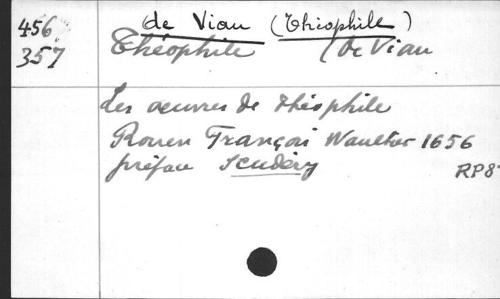 456 de Viau (Théophile)
357 Théophile (de Viau
Les oeuvres de Théophile
Rouen François Vaultier 1656
préface Scudéry
RP8